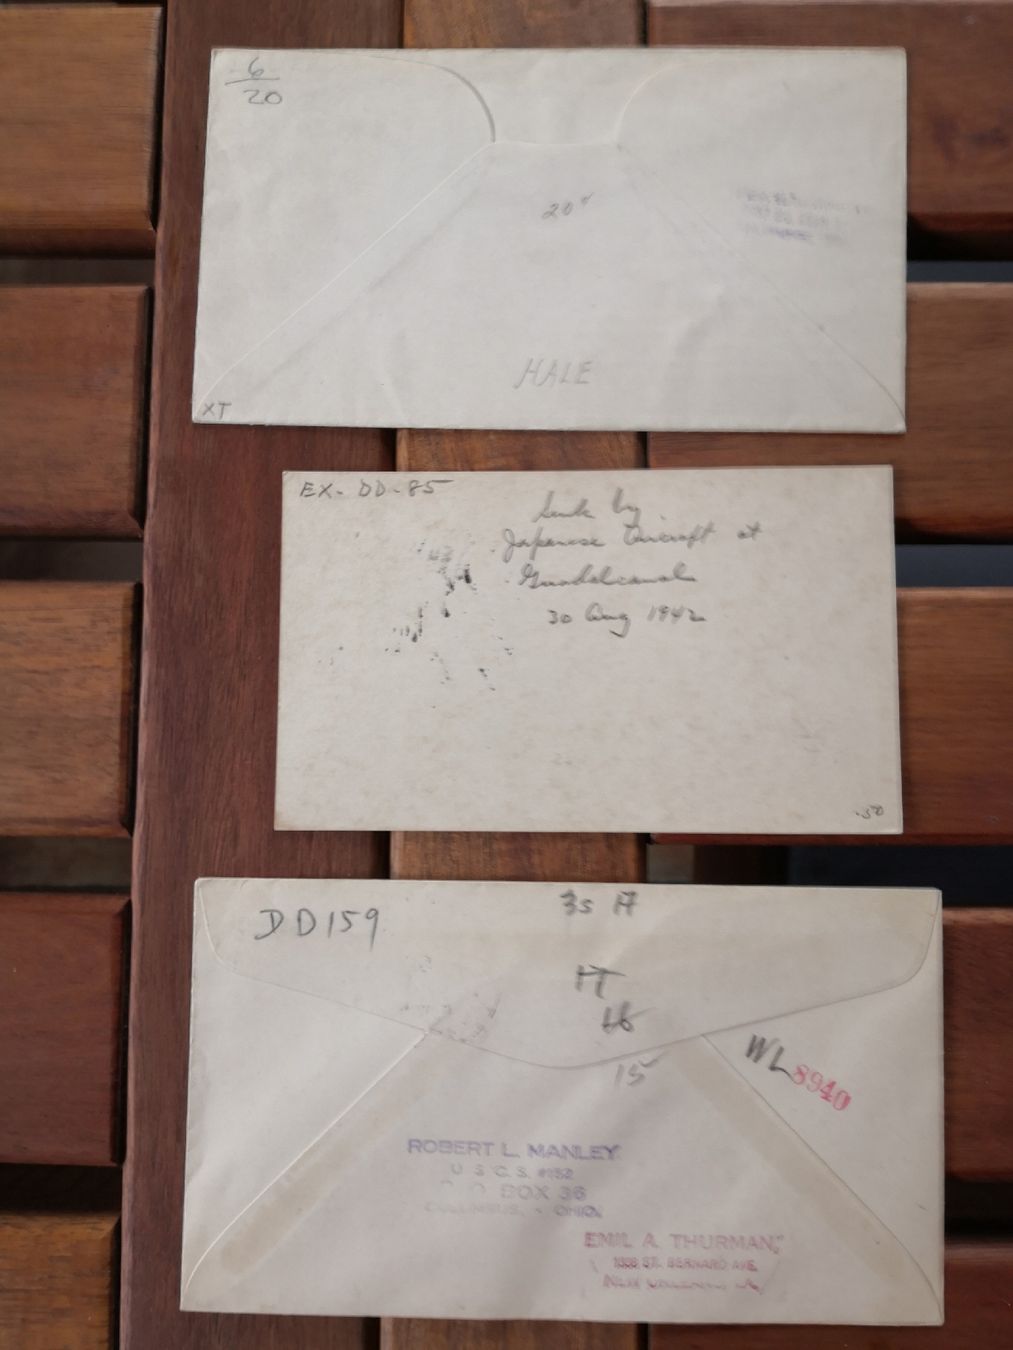 6
20
20
HALE
XT
EX- DD-85
Sunk by
Japanese Aircraft at
Guadalcanal
30 Aug 1942
.50
DD159
35 17
17
16
15
WL
8940
ROBERT L. MANLEY
U S C. S.
BOX 36
COLUMBUS, OHIO.
EMIL A. THURMAN,
ST. BERNARD AVE.
NEW ORLEANS LA.